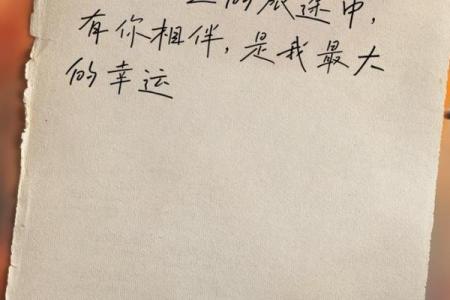 的旅途中，
有你相伴，是我最大
的幸运